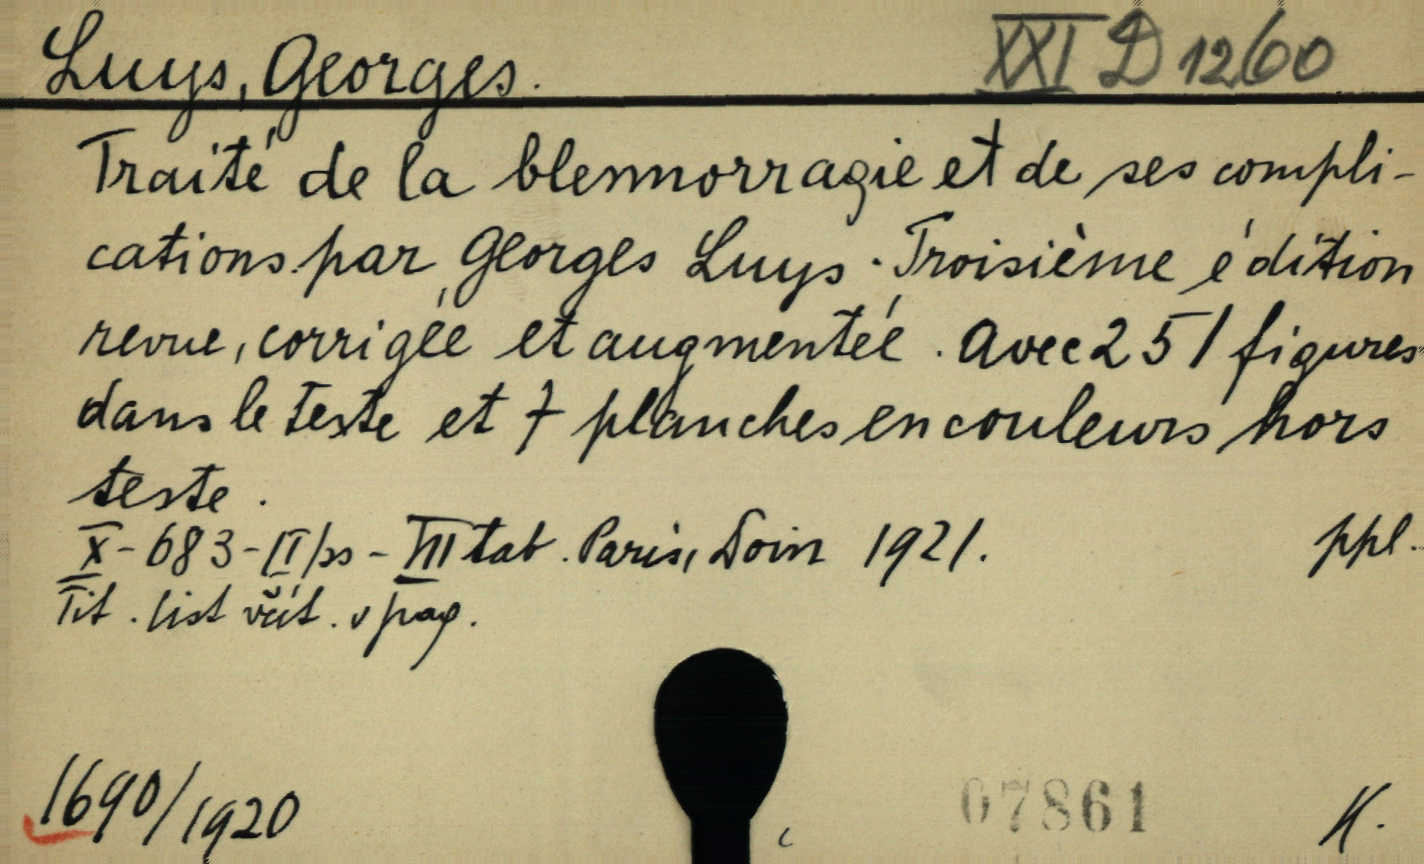 Luys, Georges.
XXI D 1260
Traité de la blennorragie et de ses compli-
cations par Georges Luys. Troisième édition
revue, corrigée et augmentée. Avec 251 figures
dans le texte et 7 planches en couleurs hors
texte.
X-683-II/ss - VII tab. Paris, Doin 1921. ppl.
Tit. list včít. v pag.
1690/1920
07861
K.